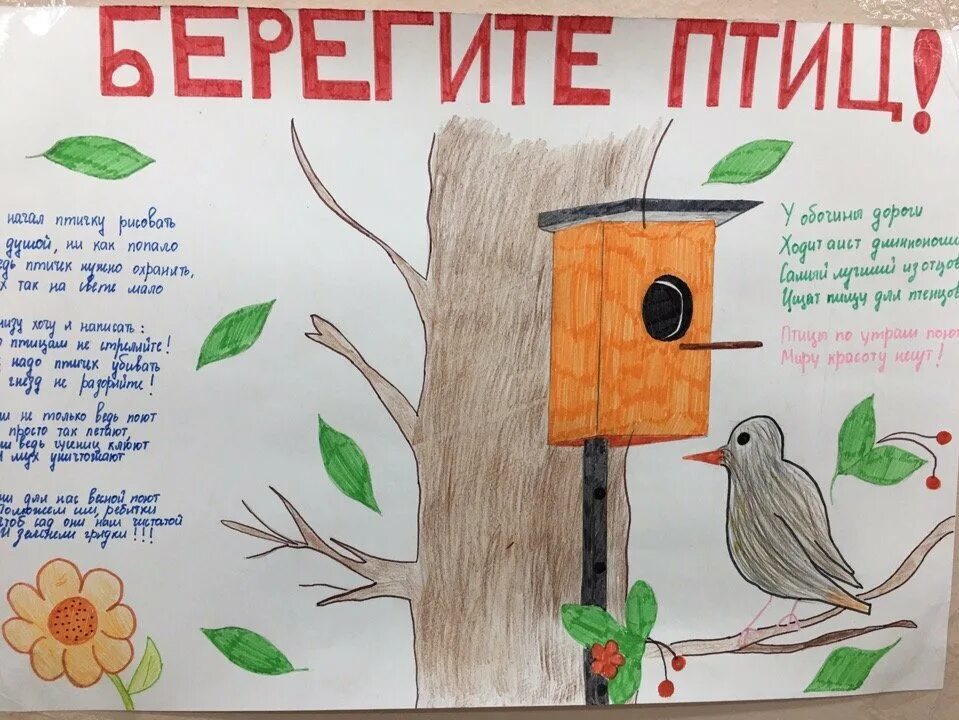 БЕРЕГИТЕ ПТИЦ!
начал птичку рисовать
душой, ни как попало
птичек нужно охранять,
так на свете мало
хочу я написать:
птицам не стреляйте!
надо птичек убивать
гнёзд не разоряйте!
не только ведь поют
просто так летают
ведь гусениц клюют
мух уничтожают
для нас весной поют
Поможем им, ребятки
сад они наш чистатой
И зелтели грядки!!!
У обочины дороги
Ходит аист длинноногий
Самый лучший из отцов
Ищит пищу для птенцов
Птицы по утрам поют
Миру красоту несут!